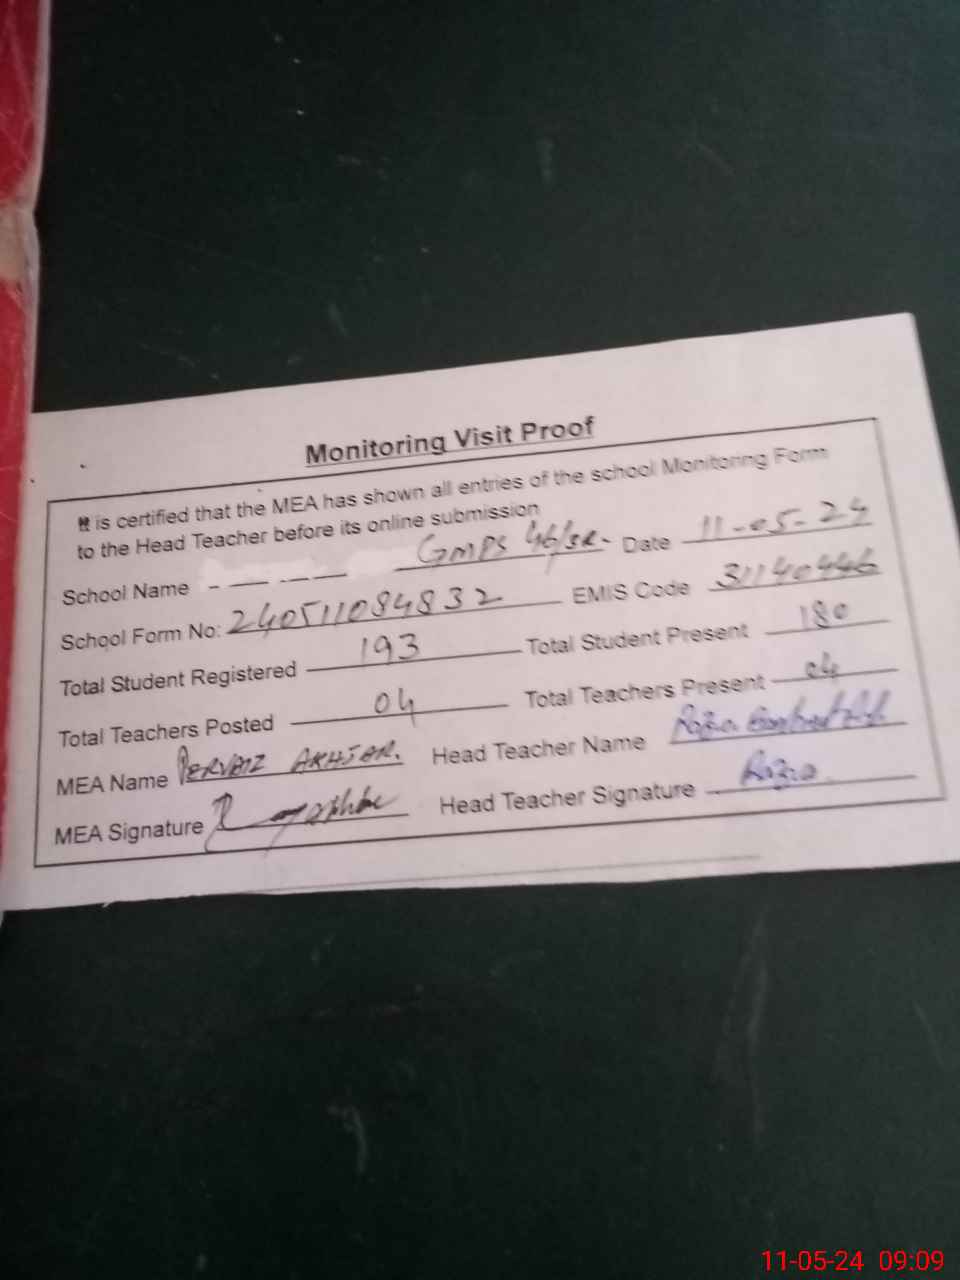 Monitoring Visit Proof
It is certified that the MEA has shown all entries of the school Monitoring Form
to the Head Teacher before its online submission
School Name GMPS 46/SR. Date 11-05-24
School Form No: 240511084832 EMIS Code 31140446
Total Student Registered 193 Total Student Present 180
Total Teachers Posted 04 Total Teachers Present 04
MEA Name PERVAIZ AKHTAR. Head Teacher Name Razia
MEA Signature Head Teacher Signature Razia
11-05-24 09:09